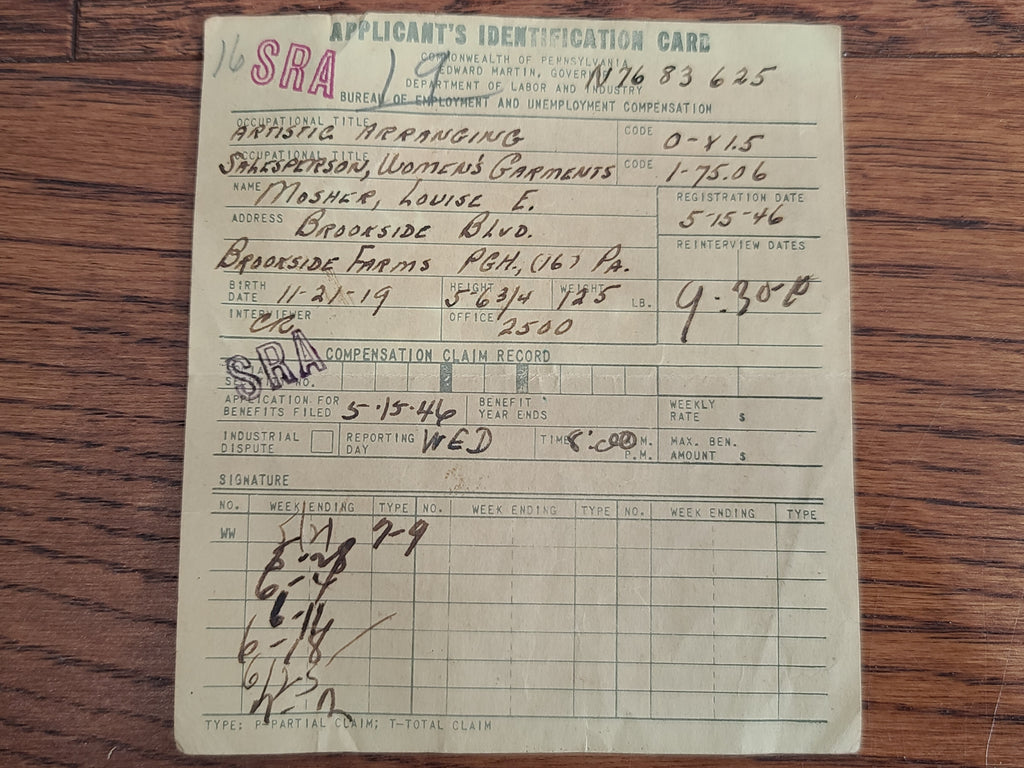 APPLICANT'S IDENTIFICATION CARD
16 SRA 19 COMMONWEALTH OF PENNSYLVANIA
EDWARD MARTIN, GOVERNOR
N 76 83 625
DEPARTMENT OF LABOR AND INDUSTRY
BUREAU OF EMPLOYMENT AND UNEMPLOYMENT COMPENSATION
OCCUPATIONAL TITLE ARTISTIC ARRANGING CODE 0-X1.5
OCCUPATIONAL TITLE SALESPERSON, WOMEN'S GARMENTS CODE 1-75.06
NAME MOSHER, LOUISE E. REGISTRATION DATE
5-15-46
ADDRESS BROOKSIDE BLVD.
REINTERVIEW DATES
BROOKSIDE FARMS PGH., (16) PA.
BIRTH DATE 11-21-19 HEIGHT 5-6 3/4 WEIGHT 125 LB. 9:30
INTERVIEWER CR OFFICE 2500
SRA COMPENSATION CLAIM RECORD
NO.
APPLICATION FOR BENEFITS FILED 5-15-46 BENEFIT YEAR ENDS WEEKLY RATE $
INDUSTRIAL DISPUTE REPORTING DAY WED TIME 8:00 M. P.M. MAX. BEN. AMOUNT $
SIGNATURE
NO. WEEK ENDING TYPE NO. WEEK ENDING TYPE NO. WEEK ENDING TYPE
WW 7-9
5-28
6-4
6-11
6-18
TYPE: P-PARTIAL CLAIM; T-TOTAL CLAIM